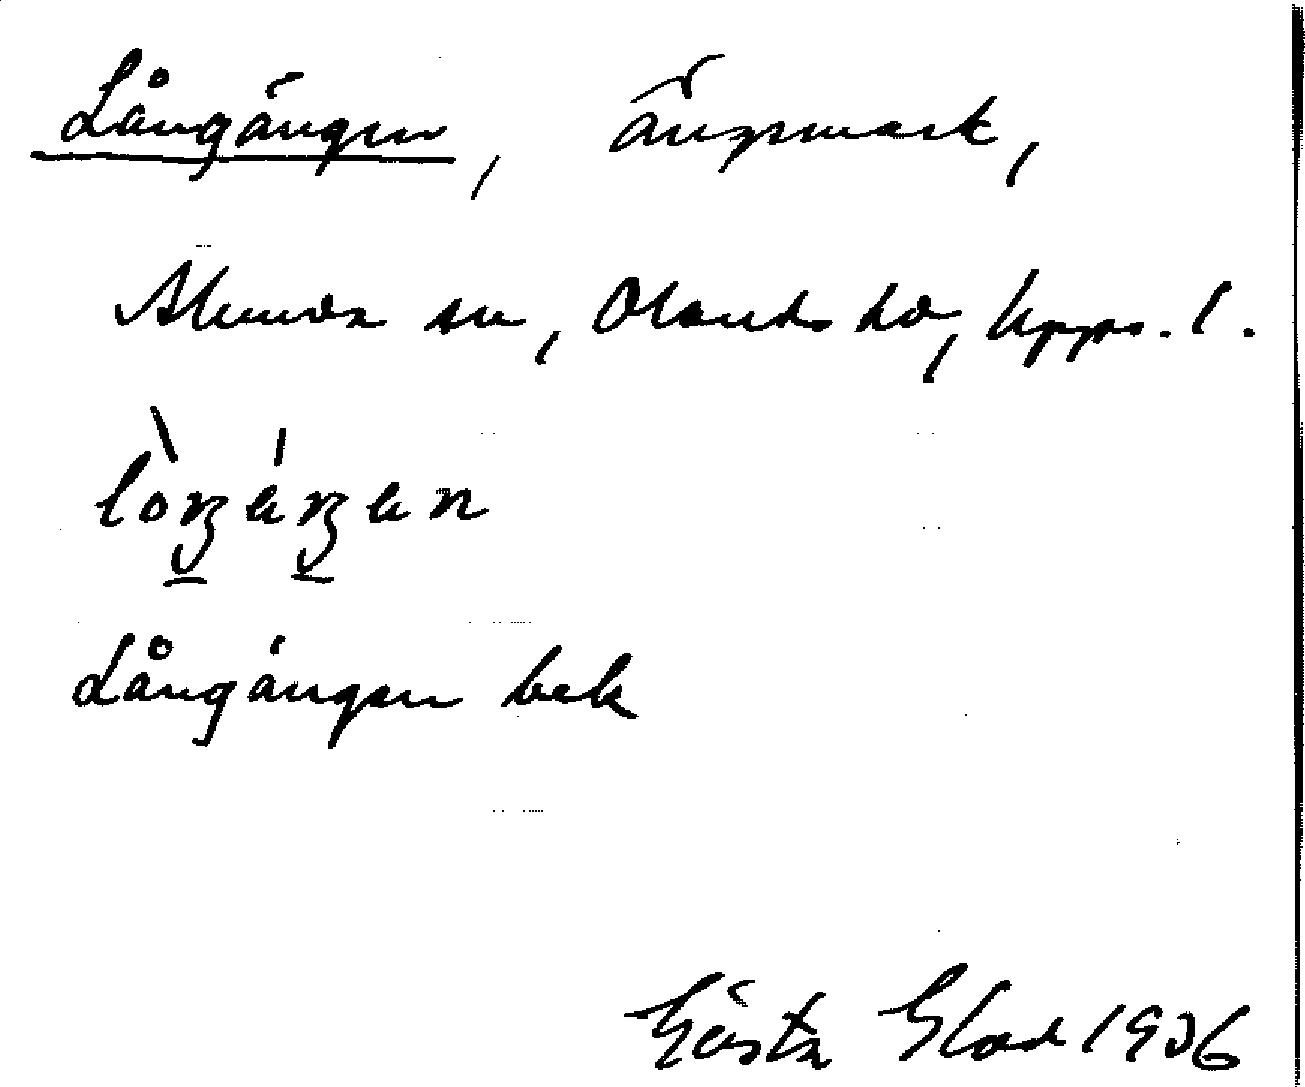 Långängen, ängsmark,
Alunda sn, Olands hd, Upps. l.
Långängen bek
Gösta Glad 1936